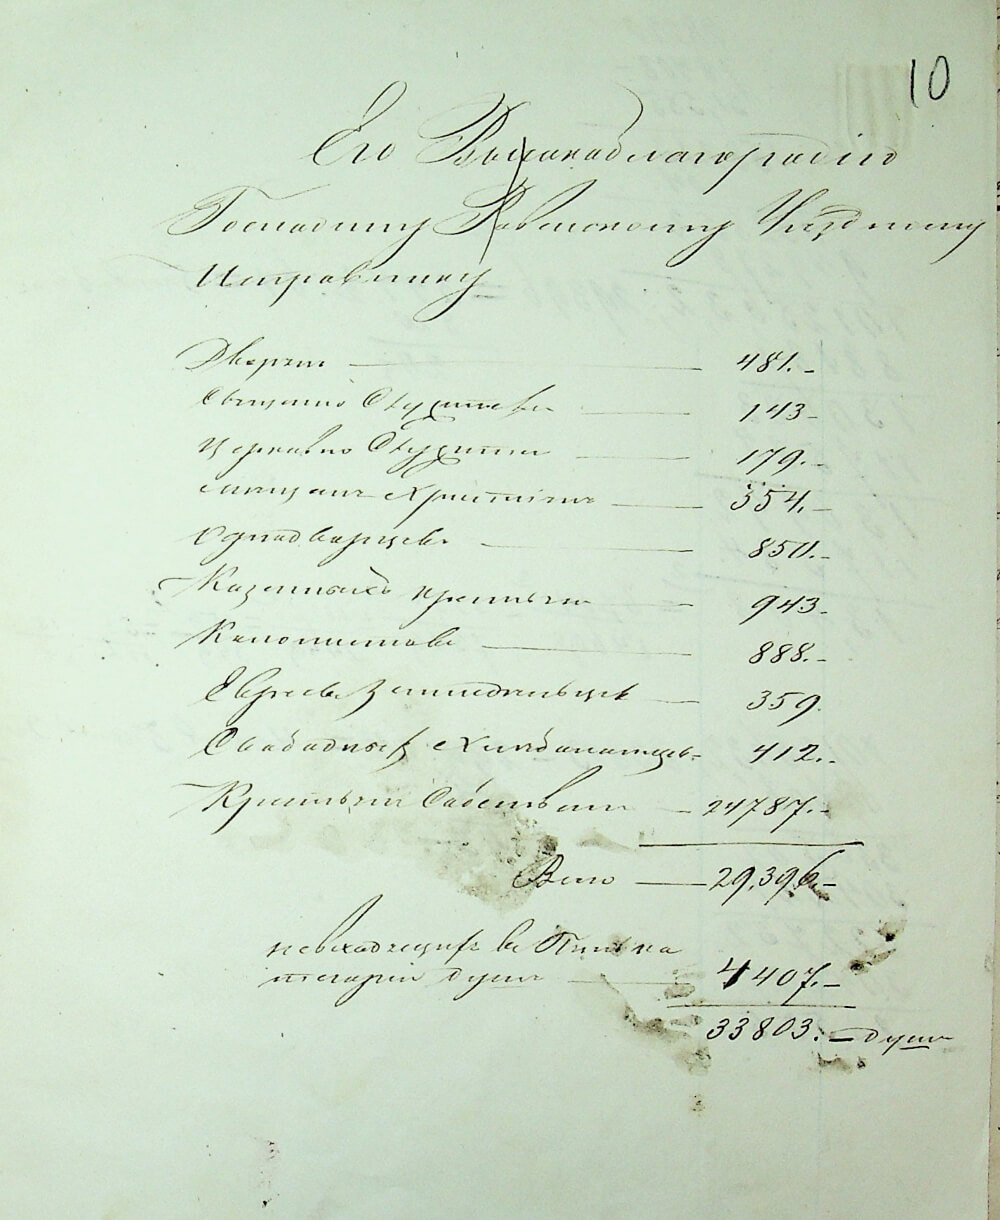 10
Его Высокоблагородию
Господину Ровенскому Уездному
Исправнику
Дворян — 481.-
Священно Служителей — 143-
Церковно Служителей — 179.-
Мещан Христиан — 354.-
Однодворцев — 850.-
Казенных крестьян — 943-
Колонистов — 888.-
Евреев Земледельцев — 359.
Свободных Хлебопашцев- 412.-
Крестьян Собственни — 24787.-
Всего — 29,396-
невходящих в
душ — 4407.-
33803.- душ